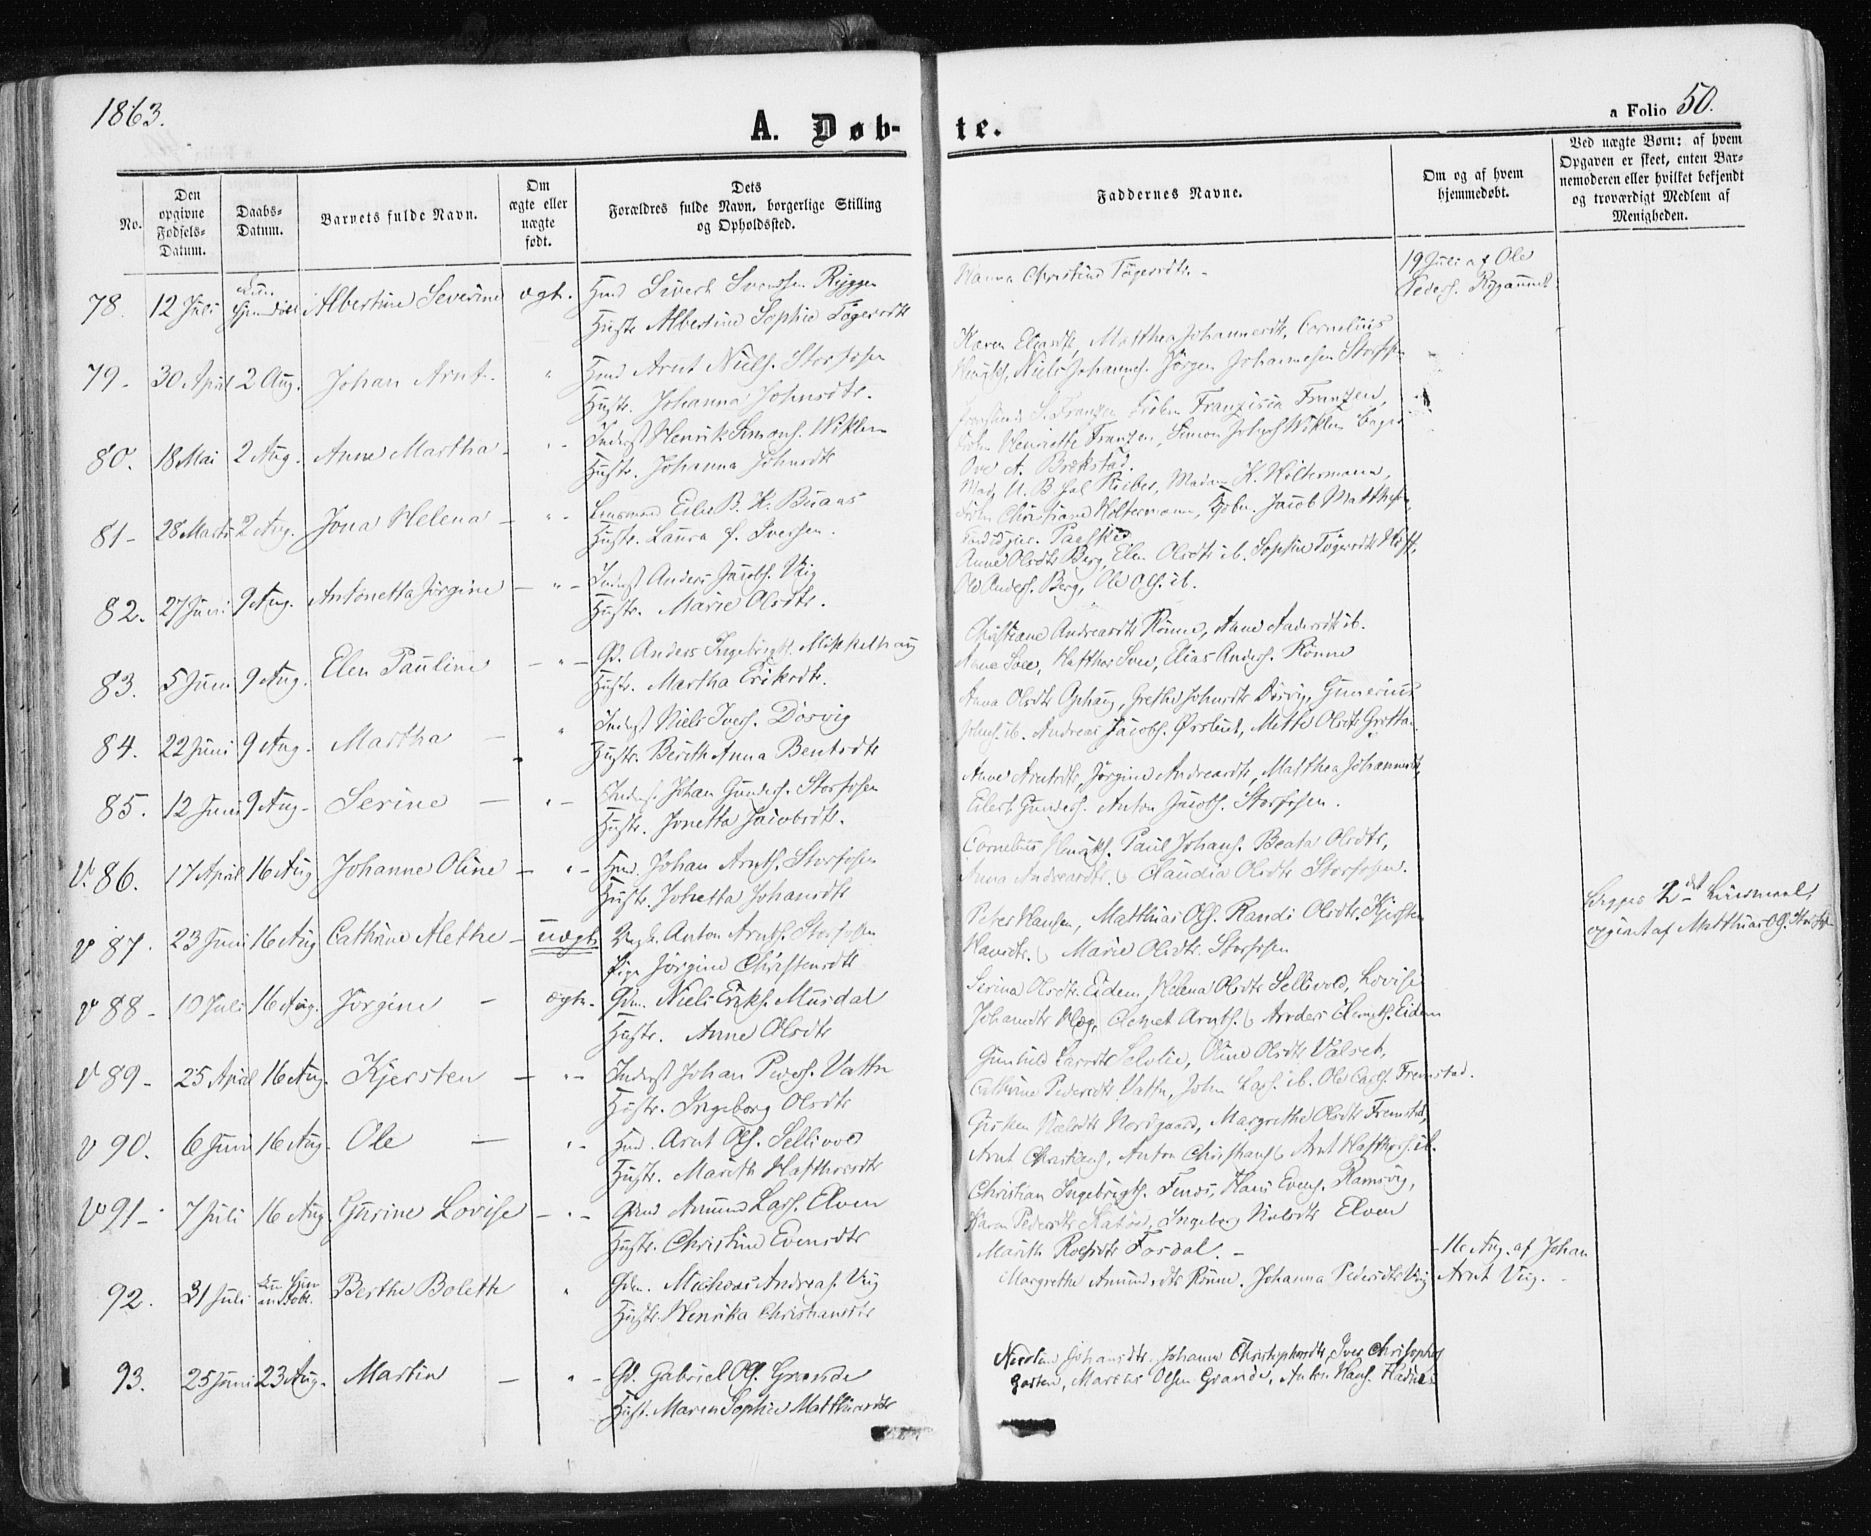 1863.
A. Døb-
te.
a Folio 50.
No.
Den
opgivne
Fødsels-
Datum.
Daabs-
Datum.
Barnets fulde Navn.
Om
ægte eller
uægte
født.
Dets
Forældres fulde Navn, borgerlige Stilling
og Opholdssted.
Faddernes Navne.
Om og af hvem
hjemmedøbt.
Ved uægte Børn: af hvem
Opgaven er skeet, enten Bar-
nemoderen eller hvilket bekjendt
og troværdigt Medlem af
Menigheden.
78. 12 Juli Albertine Severine ægt.
Hmd Sivert Svendsen Ryggen
Hustr. Albertine Sophie
Hanna Christine
19 Juli af Ole
Peders.
79. 30 April 2 Aug. Johan Arnt. "
Hmd Arnt Niels. Storfosen
Hustr. Johanna Johnsdtr.
Karen Eliasdtr, Matthea Johannesdtr, Cornelius
Henriks, Niels Johannes. Jørgen Johannesen Storfosen
80. 18 Mai 2 Aug. Anne Martha "
Inderst Henrik Simons. Wiklem
Hustr. Johanna Johnsdtr
S. Frantzen Frøken Franzisca Frantzen,
Frøkn Henriette Frantzen, Simon Johns Wiklem
Ove A. Brekstad.
81 - 28 Marts 2 Aug. Jona Helena - "
Lensmand Eiler B. K. Buaas
Hustr. Laura f. Iversen.
Mad. U. B. Riiber, Madam K. Holtermann,
Frøkn Christiane Holtermann, Jacob Matthes
82. 27 Juni 9 Aug. Antonetta Jørgine - "
Inderst Anders Jacobs. Uig
Hustr. Marie Olsdtr.
Anne Olsdtr Berg, Elen Olsdtr ib. Sophie
Ole Anders. Berg, Ole Ols. ib.
83. 5 Juni 9 Aug. Elen Pauline - "
Gd. Anders Ingebrigts. Mikkelhaug
Hustr. Martha Eriksdtr.
Christiane Andreasdtr Rønne, Anne Andersdtr ib.
Anne Soee, Elias Anders. Rønne
84. 22 Juni 9 Aug. Martha - "
Inderst Niels Ivers. Døsvig
Hustr. Berith Anna Bentsdtr
Anna Olsdtr Ophaug, Grethe Johnsdtr Døsvig, Gunerius
Johns. ib. Andreas Jacobs. Ørslund, Mette Olsdtr Grotta.
85. 12 Juni 9 Aug. Serine - "
Inderst. Johan Gunders. Storfosen
Hustr. Jonetta Jacobsdtr.
Anne Arntsdtr, Jørgine Andreasdtr, Matthea Johannesdtr,
Eilert Gunders. Anton Jacobs. Storfosen.
V. 86. 17 April 16 Aug Johanne Oline - "
Hmd. Johan Arnts. Storfosen
Hustr. Johansdtr
Cornelius Henriks. Paul Johans. Beata Olsdtr,
Anna Andreasdtr. Claudia Olsdtr Storfosen.
V 87. 23 Juni 16 Aug Cathrine Alethe - uægt
Ungk. Anton Arnts. Storfosen
Pige Jørgine Christensdtr
Peter Hansen, Matthias Ols. Randi Olsdtr. Kjersten
Hansdtr. Marie Olsdtr. Storfosen
Begges 2det Leiermaal,
opgivet af Matthias Ols. Storfosen
V 88 - 10 Juli 16 Aug. Jørgine - ægte.
Gdm. Niels Eriks. Musdal
Hustr. Anne Olsdtr
Serina Olsdtr. Eidem, Helena Olsdtr Sellivold, Lovise
Johansdtr Clemet Arnts. Anders Clemets. Eidem
V 89 - 25 April 16 Aug. Kjersten - "
Inderst Johan Peders. Vattn
Hustr. Ingeborg Olsdtr
Gunhild Larsdtr Selvlie, Oline Olsdtr Valset,
Cathrine Pedersdtr Vattn, John Lars. ib. Ole Carls. Fremstad.
V 90. 6 Juni 16 Aug. Ole - "
Hmd. Arnt Ols. Sellivold
Hustr. Marith Hafthorsdtr
Nielsdtr Nordgaard, Margrethe Olsdtr Fremstad,
Arnt Christians, Anton Christians, Arnt Hafthors. ib.
V 91 - 7 Juli 16 Aug. Gurine Lovise - "
Gdmd Amund Lars. Elven
Hustr. Christine Evensdtr
Christian Ingebrigts. Hans Evens. Ramsvig,
Karen Pedersdtr Ingeborg Nielsdtr Elven
92. 31 Juli Berthe Bolette "
Gdm. Michael Andreas. Uig
Hustr. Henrika Christiansdtr
Marith Fosdal.
Margrethe Amundsdtr Rønne. Johanna Pedersdtr Uig
16 Aug. af Johan
Arnt Uig.
93. 25 Juni 23 Aug. Martin - "
Gd. Gabriel Ols. Grande
Hust. Maren Sophie Matthiasdtr
Johansdtr. Johanna Christophersdtr, Iver Christophers
Garten, Marius Olsen Grande, Anton Hans.